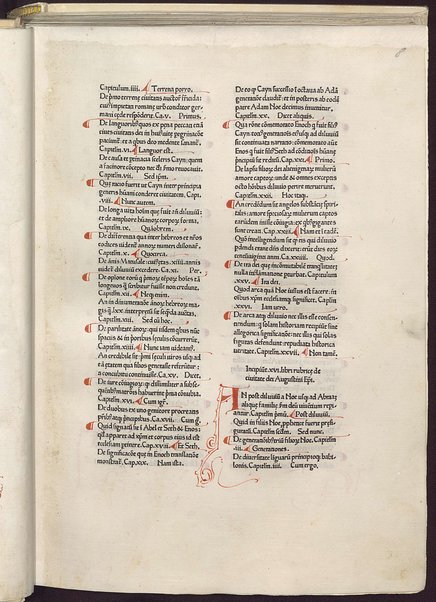 Capitulum .iiii. Terrena porro.
De primo terrene ciuitatis auctore fratricida:
cuius impietati romane urbis conditor ger-
mani cede responderit. Ca. v. Primus.
De languoribus
ciues ciuitatis dei in huius uite peregrinatione pa-
ciuntur: et a quibus deo medente sanantur.
Capitulum .vi. Languor est.
De causa et pertinacia sceleris Cayn: quem
a facinore concepto nec dei sermo reuocauit.
Capitulum .vii. Sed ipsum.
Que ratio fuerit ut Cayn inter principia
generis humani conderet ciuitatem. Capitulum
.viii. Nunc autem.
De longa uita hominum que fuit ante diluuium:
et de ampliore humanorum corporum forma.
Capitulum .ix. Quamobrem.
De differentia que inter hebreos et nostros
codices uidetur annorum numeri dissonare.
Capitulum .x. Quocirca.
De annis Matusale: cuius etas .xiiii. annis
uidetur diluuium excedere. Ca. xi. Per.
De opinione eorum qui primorum temporum homines tam
longeuos ut scribitur fuisse non credunt.
Capitulum .xii. Neque enim.
An in dinumeratione annorum hebreorum ma-
gis quam .lxx. interpretum sit sequenda auctoritas.
Capitulum .xiii. Sed cum hoc.
De paritate annorum: qui iisdem quibus nunc
spaciis et in prioribus seculis cucurrerunt.
Capitulum .xiiii. Nunc iam uideamus.
An credibile sit primi seculi uiros usque ad
etatem qua filios generasse referuntur: a
concubitu continuisse. Ca. xv. Dicet.
De iure coniugiorum: quod dissimile a subse-
quentibus matrimoniis habuerint prima connubia.
Capitulum .xvi. Cum igitur.
De duobus ex uno genitore procreatis
patribus atque principibus. Ca. xvii. Cum.
Quid significatum sit in Abel et Seth et Enos
quod appareat ad christum et corpus eius id est
ecclesiam pertinere. Cap. xviii. Et Seth.
De significatione que in Enoch translatione
monstratur. Cap. xix. Nam ista.
De eo quod Cayn successio in octaua ab Adam
generatione clauditur: et in posteris ab eodem
patre Adam Noe decimus inuenitur.
Capitulum .xx. Dicet aliquis.
Qua ratione commemorato Enoch qui fuit filius
Cayn totius generationis eius usque ad diluuium
sit continuata narratio: commemorato autem
Enos qui fuit filius Seth ad conditionis humane
principium sit reditum. Cap. xxi. Primo.
De lapsu filiorum dei alienigenarum mulierum
amore captorum: unde et omnes exceptis
octo hominibus diluuio perire meruerunt.
Capitulum .xxii. Hoc itaque.
An credendum sit angelos substantie spiri-
talis: amore speciosarum mulierum captos
earundem inisse coniugia: ex quibus gigantes
sunt creati. Cap. xxiii. Nam et id.
Quomodo intelligendum sit quod eis qui diluuio
perdendi erant dominus dixerit: erunt dies eorum
centum uiginti anni. Ca. xxiiii. Quod.
De ira dei que incommutabilem tranquillitatem
nulla inflammatione perturbat. Capitulum
.xxv. Ira dei.
Quod arca quam Noe iussus est facere: in
omnibus christum ecclesiamque significet. Capitulum
.xxvi. Iam uero.
De arca atque diluuio nec illis esse consen-
tiendum: qui solam historiam recipiunt sine
allegorica significatione: nec illis qui solas
figuras defendunt repudiata historica
ueritate. Capitulum .xxvii. Non tamen.
Incipiunt .xvi. libri rubrice de
ciuitate dei Augustini Episcopi.
An post diluuium a Noe usque ad Abraam
alique familie secundum deum uiuentium repe-
riantur. Capitulum primum. Post diluuium.
Quid in filiis Noe prophetice fuerit prefi-
guratum. Capitulum secundum. Sed nunc.
De generationibus trium filiorum Noe. Capitulum
.iii. Generationes.
De diuersitate linguarum principioque babi-
lonis. Capitulum .iiii. Cum ergo.